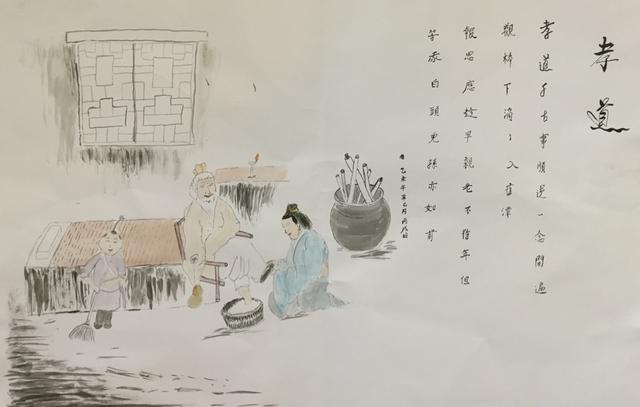 孝道
孝道千古事順逆一念間遍
觀下滴入舊潭
報恩應趁早親老不待年但
等白頭兒孫亦如前